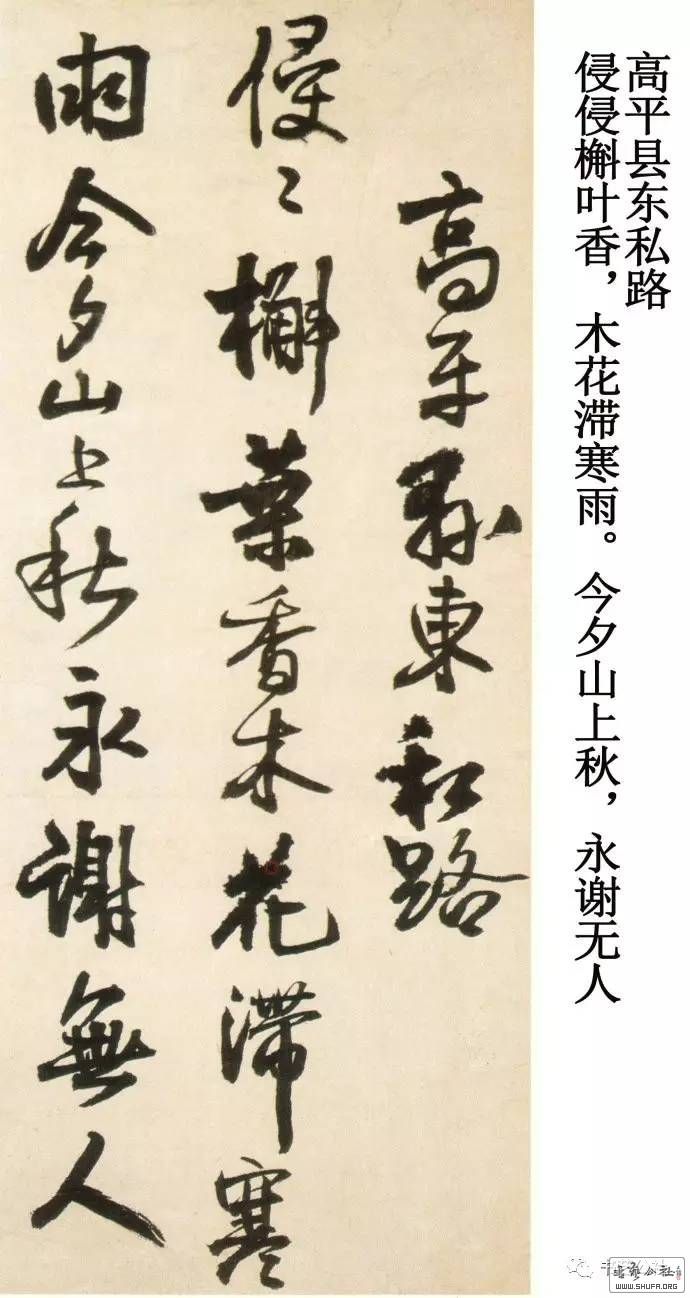 高平县东私路
侵侵槲叶香，木花滞寒雨。今夕山上秋，永谢无人
高平縣東私路
侵〻槲葉香木花滯寒
雨今夕山上秋永謝無人
书艺公社
WWW.SHUFA.ORG